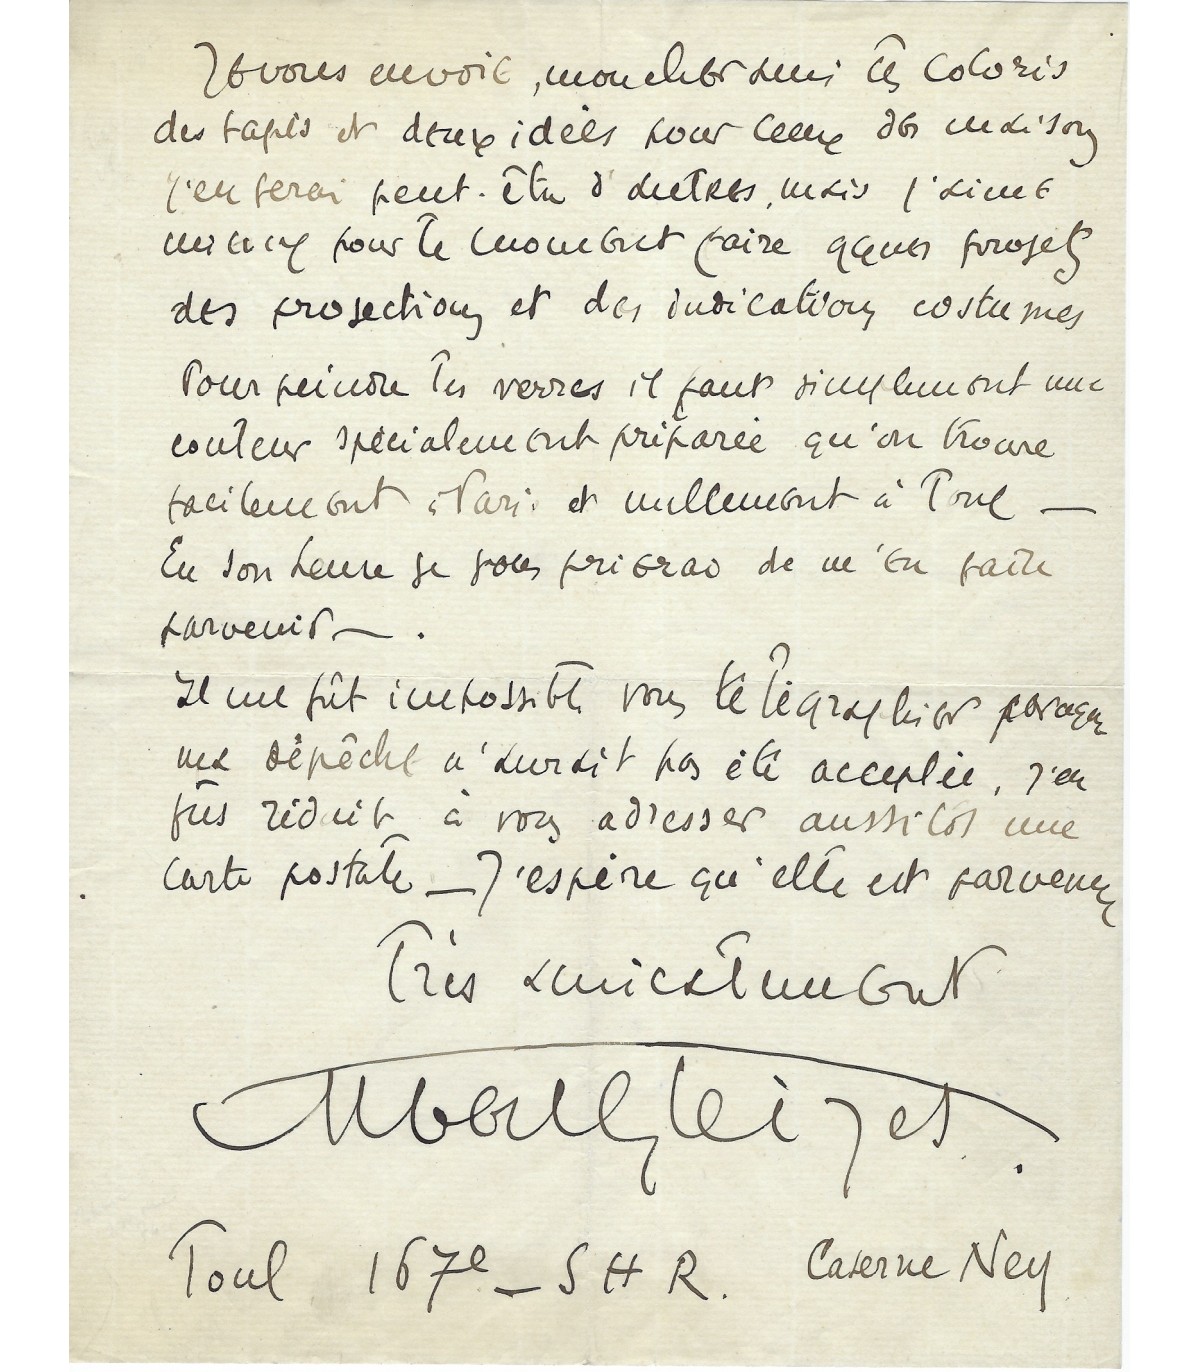 Je vous envoie, mon cher ami les coloris
des tapis et deux idées pour ceux des maisons
j'en ferai peut-être d'autres, mais j'aime
mieux pour le moment faire qques projets
des projections et des indications costumes
Pour peindre les verres il faut simplement une
couleur spécialement préparée qu'on trouve
facilement à Paris et nullement à Toul —
En son heure je vous prierai de m'en faire
parvenir — .
Il me fût impossible vous télégraphier parce que
ma dépêche n'aurait pas été acceptée, j'en
fus réduit à vous adresser aussitôt une
carte postale — J'espère qu'elle est parvenue
Très amicalement
Albert Gleizes.
Toul 167e — S H R. Caserne Ney